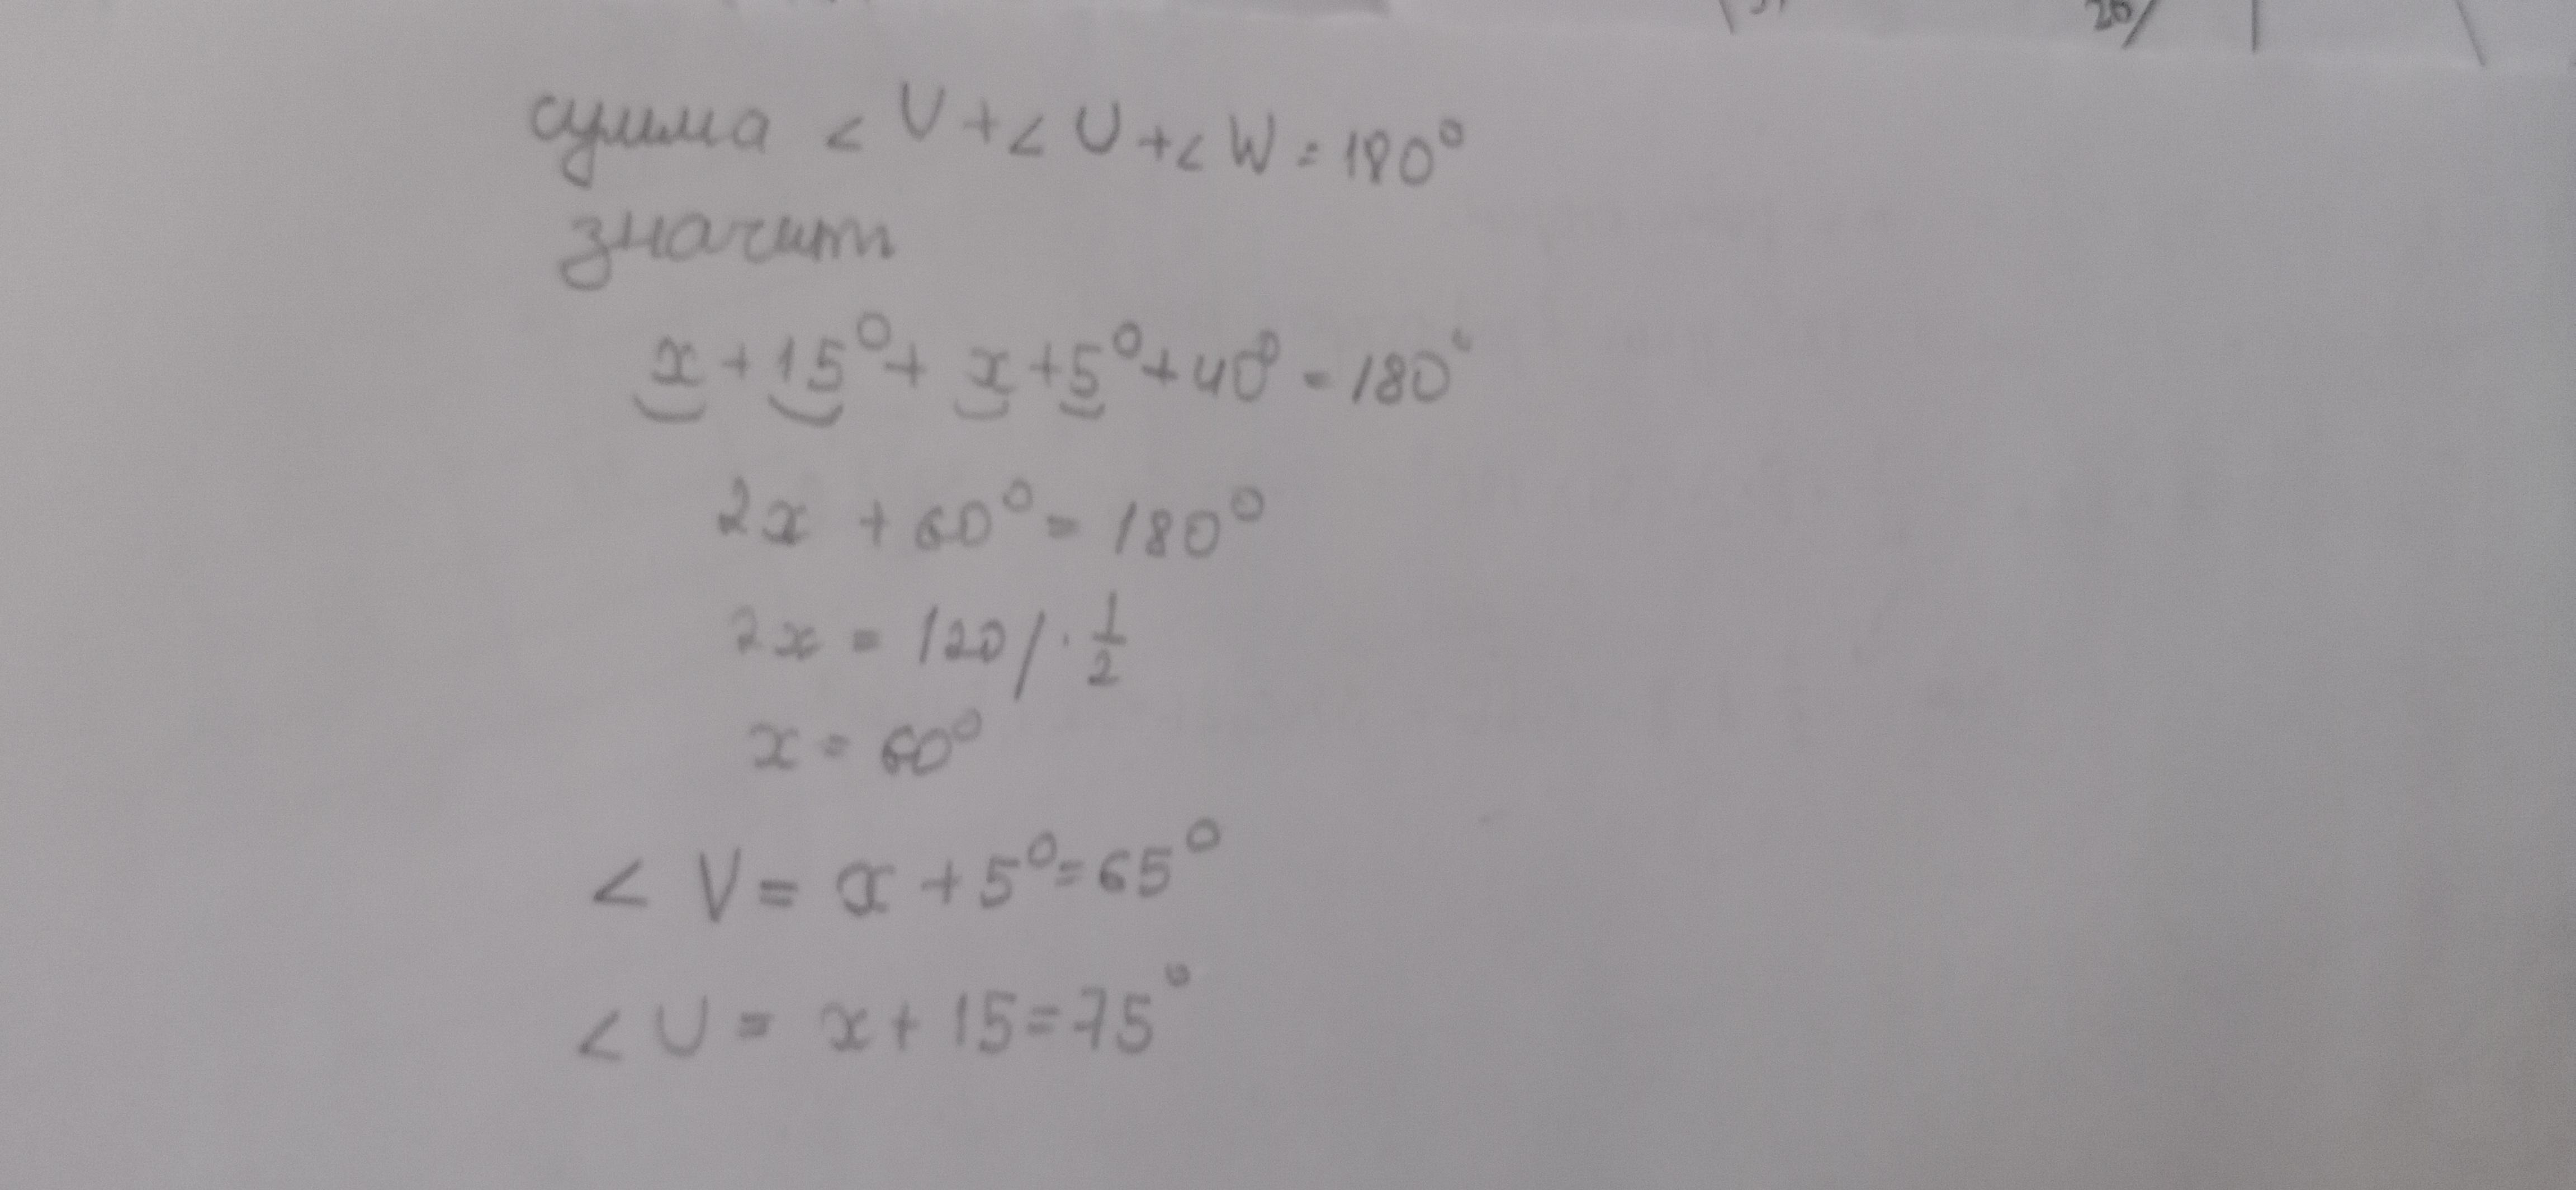 26/
сумма < V + < U + < W = 180°
значит
x + 15° + x + 5° + 40° = 180°
2x + 60° = 180°
2x = 120 / · 1/2
x = 60°
< V = x + 5° = 65°
< U = x + 15 = 75°